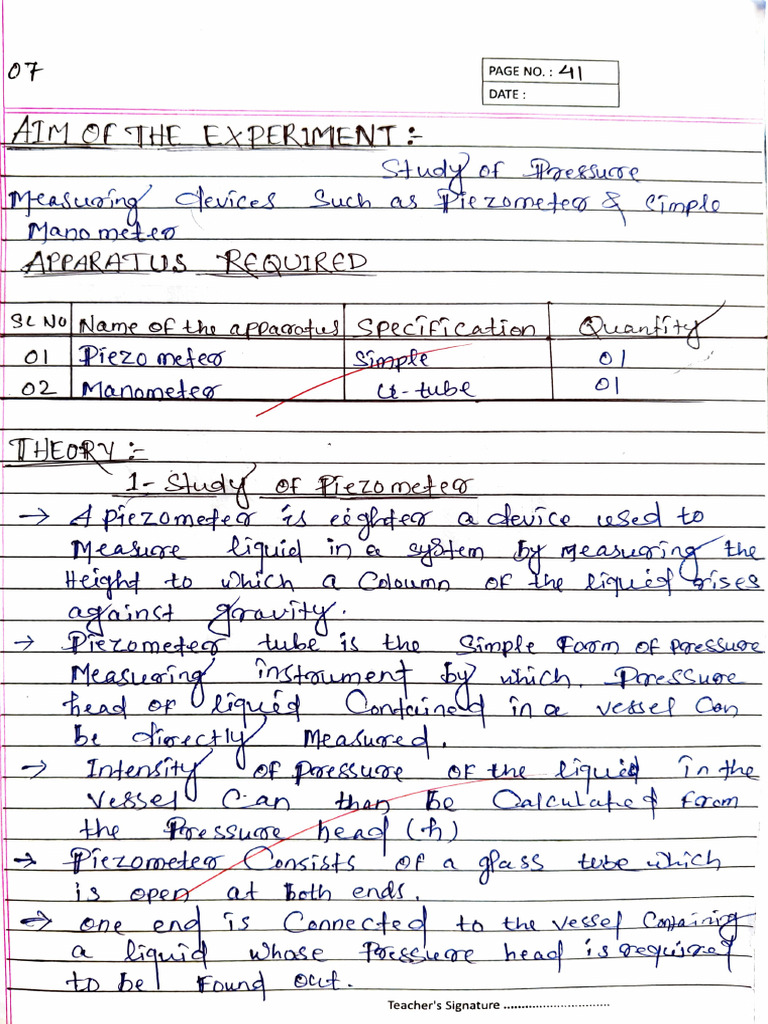 07
PAGE NO. : 41
DATE :
AIM OF THE EXPERIMENT :-
Study of Pressure
Measuring devices Such as Piezometer & Simple
Manometer
APPARATUS REQUIRED
SL NO Name of the apparatus Specification Quantity
01 Piezometer Simple 01
02 Manometer U-tube 01
THEORY :-
1- Study of Piezometer
→ A piezometer is eighter a device used to
Measure liquid in a system by measuring the
Height to which a Coloumn of the liquid rises
against gravity.
→ Piezometer tube is the Simple Form of pressure
Measuring instrument by which, Pressure
head of liquid Contained in a vessel Can
be directly Measured.
→ Intensity of pressure of the liquid in the
vessel Can than be Calculated form
the Pressure head (h)
→ Piezometer Consists of a glass tube which
is open at both ends.
→ one end is Connected to the vessel Containing
a liquid whose Pressure head is required
to be Found out.
Teacher's Signature ..............................